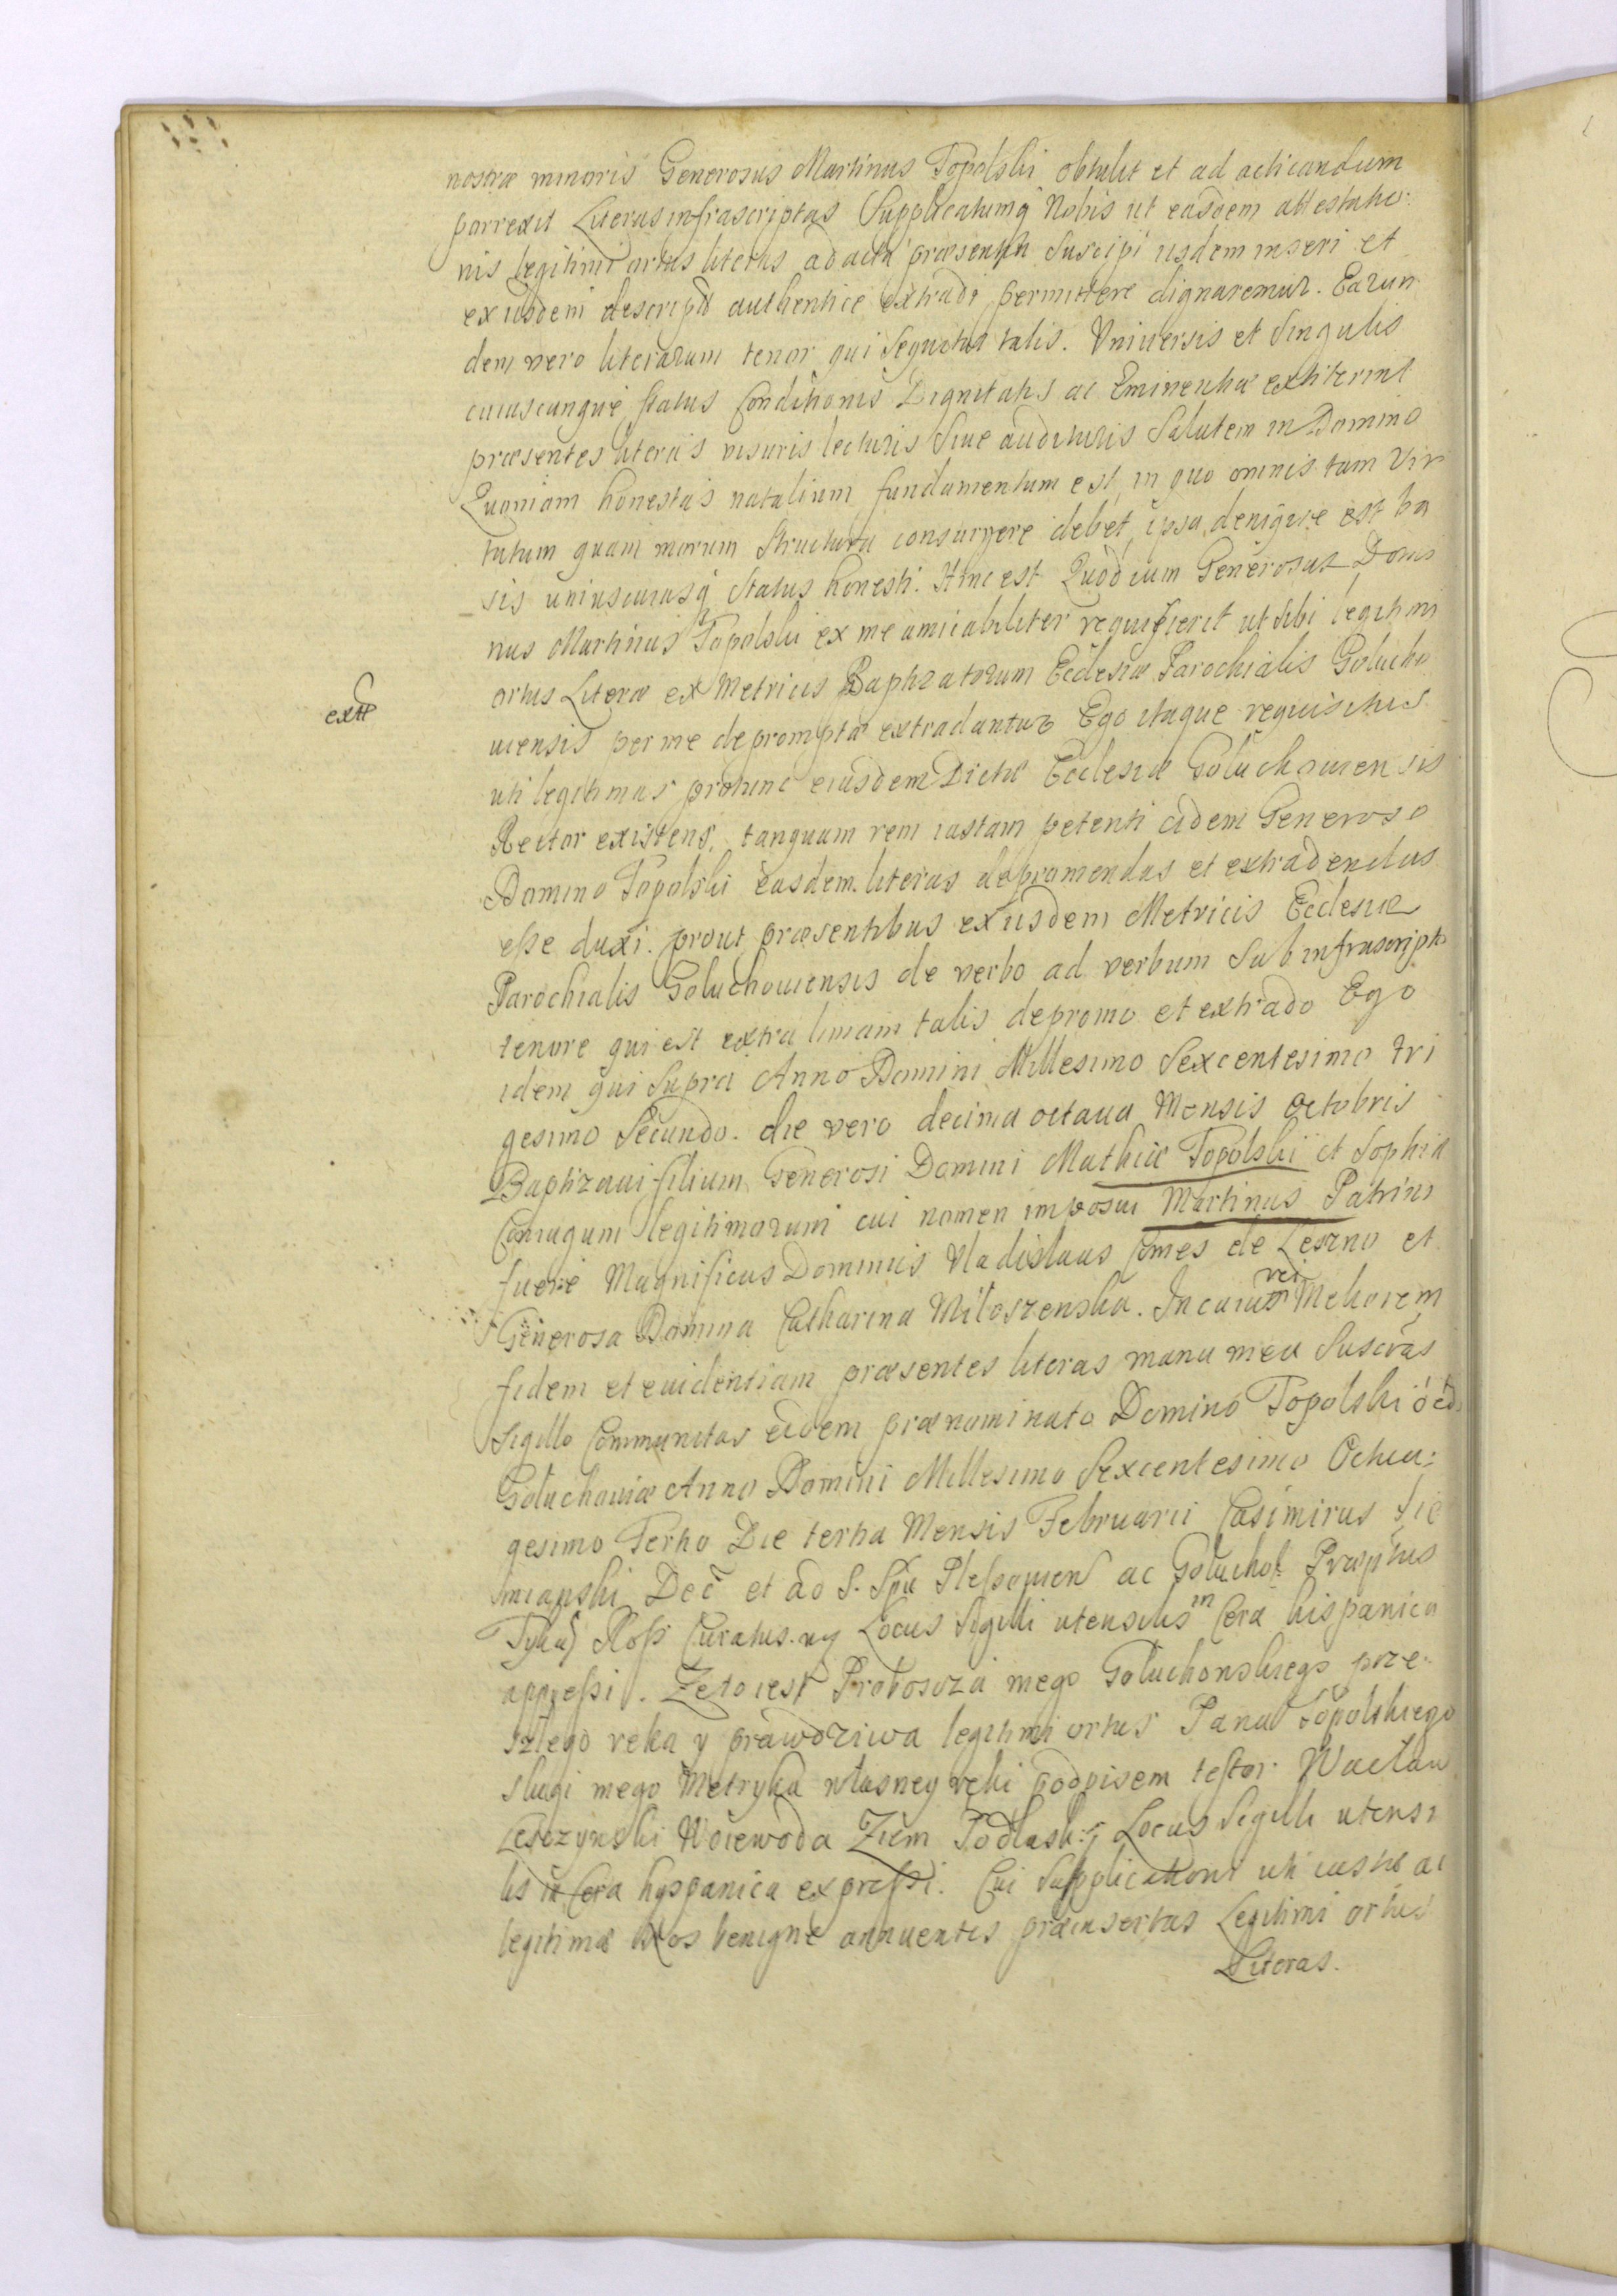 nostræ minoris Generosus Martinus Topolski obtulit et ad acticandum
porrexit Literas infrascriptas Supplicatumq Nobis ut easdem attestatio:
nis legitimi ortus literas ad acta præsentia Suscipi iisdem inseri et
ex iisdem descripta authentice extradi permittere dignaremur. Earun
dem vero literarum tenor qui Sequitur talis. Vniuersis et Singulis
cuiuscunque status Conditionis Dignitatis ac Eminentiæ extiterint
præsentes literas visuris lecturis Siue audituris Salutem in Domino
Quoniam honestas natalium fundamentum est, in quo omnis tam Vir
tutum quam morum Structura consurgere debet, ipsa denique est ba
sis uniuscuiusq Status honesti. Hinc est Quod cum Generosus Domi
nus Martinus Topolski ex me amicabiliter requisierit ut sibi legitimi
ortus Literæ ex Metricis Baptizatorum Ecclesiæ Parochialis Golucho
uiensis per me depromptæ extradantur Ego itaque requisitus
uti legitimus protunc eiusdem Dictæ Ecclesiæ Goluchouiensis
Rector existens, tanquam rem iustam petenti eidem Generoso
Domino Topolski easdem literas depromendas et extradendas
esse duxi. prout præsentibus ex iisdem Metricis Ecclesiæ
Parochialis Goluchouiensis de verbo ad verbum Sub infrascripto
tenore qui est extra liniam talis depromo et extrado Ego
idem qui Supra Anno Domini Millesimo Sexcentesimo tri
gesimo Secundo. die vero decima octaua Mensis Octobris
Baptizaui filium Generosi Domini Mathiæ Topolskii et Sophiæ
Coniugum legitimorum cui nomen imposui Martinus Patrini
fuere Magnificus Dominus Vladislaus Comes de Leszno et
Generosa Domina Catharina Miłoszenska. In cuius rei Meliorem
fidem et euidentiam præsentes literas manu mea Suscrãs
Sigillo Communitas eidem prænominato Domino Topolski
Goluchouiæ Anno Domini Millesimo Sexcentesimo Octua:
gesimo Tertio Die tertia Mensis Februarii Casimirus Sie
mianski Dec et ad S. Spũ Plessouien ac Goluchoł Præptus
Curatus. Locus Sigilli utensilis in Cera hispanica
appressi. Ze to iest Proboszcza mego Goluchonskiego prze
szłego reka y prawdziwa legitimi ortus Pana Topolskiego
sługi mego Metryka własney reki podpisem testor Wacław
Lesczynski Woiewoda Ziem Podlaski: Locus Sigilli utensi
lis in Cera hyspanica expressi. Cui Supplicationi uti iustæ ac
legitimæ Nos benigne annuentes præinsertas Legitimi ortus
Literas.